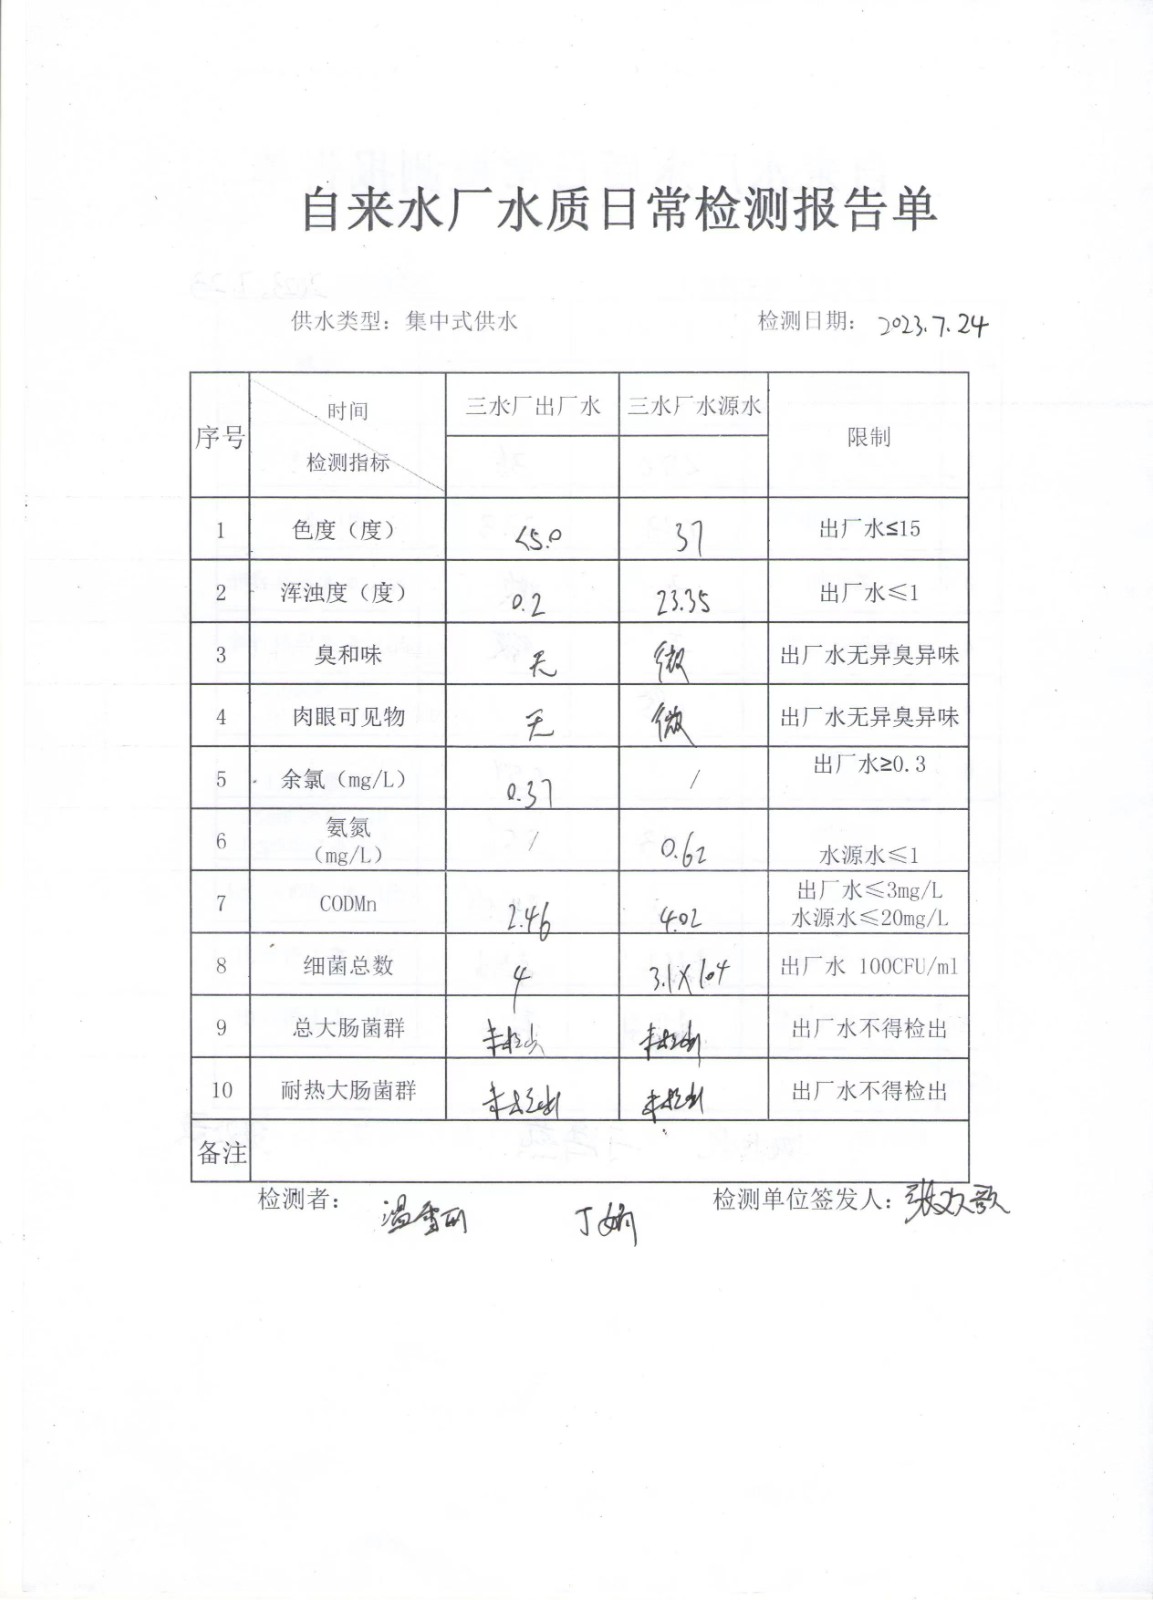 自来水厂水质日常检测报告单
供水类型：集中式供水 检测日期：2023.7.24
序号 时间 检测指标 三水厂出厂水 三水厂水源水 限制
1 色度（度） <5.0 37 出厂水≤15
2 浑浊度（度） 0.2 23.35 出厂水≤1
3 臭和味 无 微 出厂水无异臭异味
4 肉眼可见物 无 微 出厂水无异臭异味
5 余氯（mg/L） 0.37 / 出厂水≥0.3
6 氨氮（mg/L） / 0.62 水源水≤1
7 CODMn 2.46 4.02 出厂水≤3mg/L 水源水≤20mg/L
8 细菌总数 4 3.1×104 出厂水 100CFU/ml
9 总大肠菌群 未检出 未检出 出厂水不得检出
10 耐热大肠菌群 未检出 未检出 出厂水不得检出
备注
检测者： 丁娟 检测单位签发人：